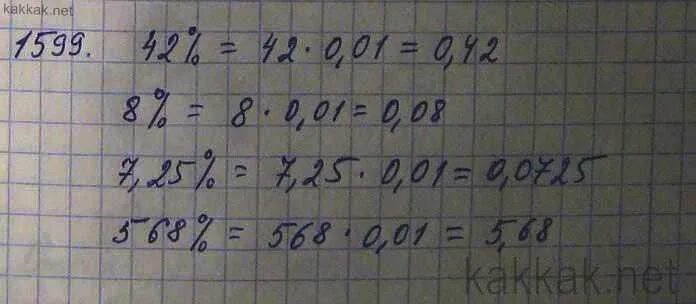 kakkak.net
1599. 42% = 42 · 0,01 = 0,42
8% = 8 · 0,01 = 0,08
7,25% = 7,25 · 0,01 = 0,0725
568% = 568 · 0,01 = 5,68
kakkak.net